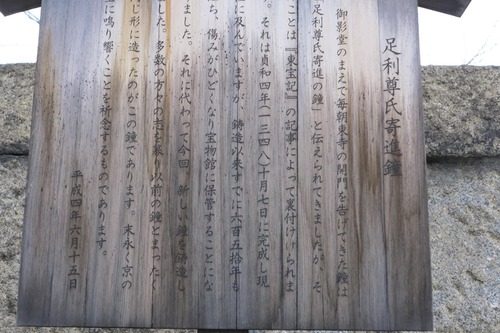 足利尊氏寄進鐘
御影堂のまえで毎朝東寺の開門を告げてきた鐘は
足利尊氏寄進の鐘」と伝えられてきましたが、そ
ことは『東宝記』の記事によって裏付けられま
。それは貞和四年(一三四八)十月七日に完成し現
に及んでいますが、鋳造以来すでに六百五十年も
ち、傷みがひどくなり宝物館に保管することにな
ました。それに代わって今回、新しい鐘を鋳造し
した。多数の方々の志を募り以前の鐘とまったく
じ形に造ったのがこの鐘であります。末永く京の
に鳴り響くことを祈念するものであります。
平成四年六月十五日